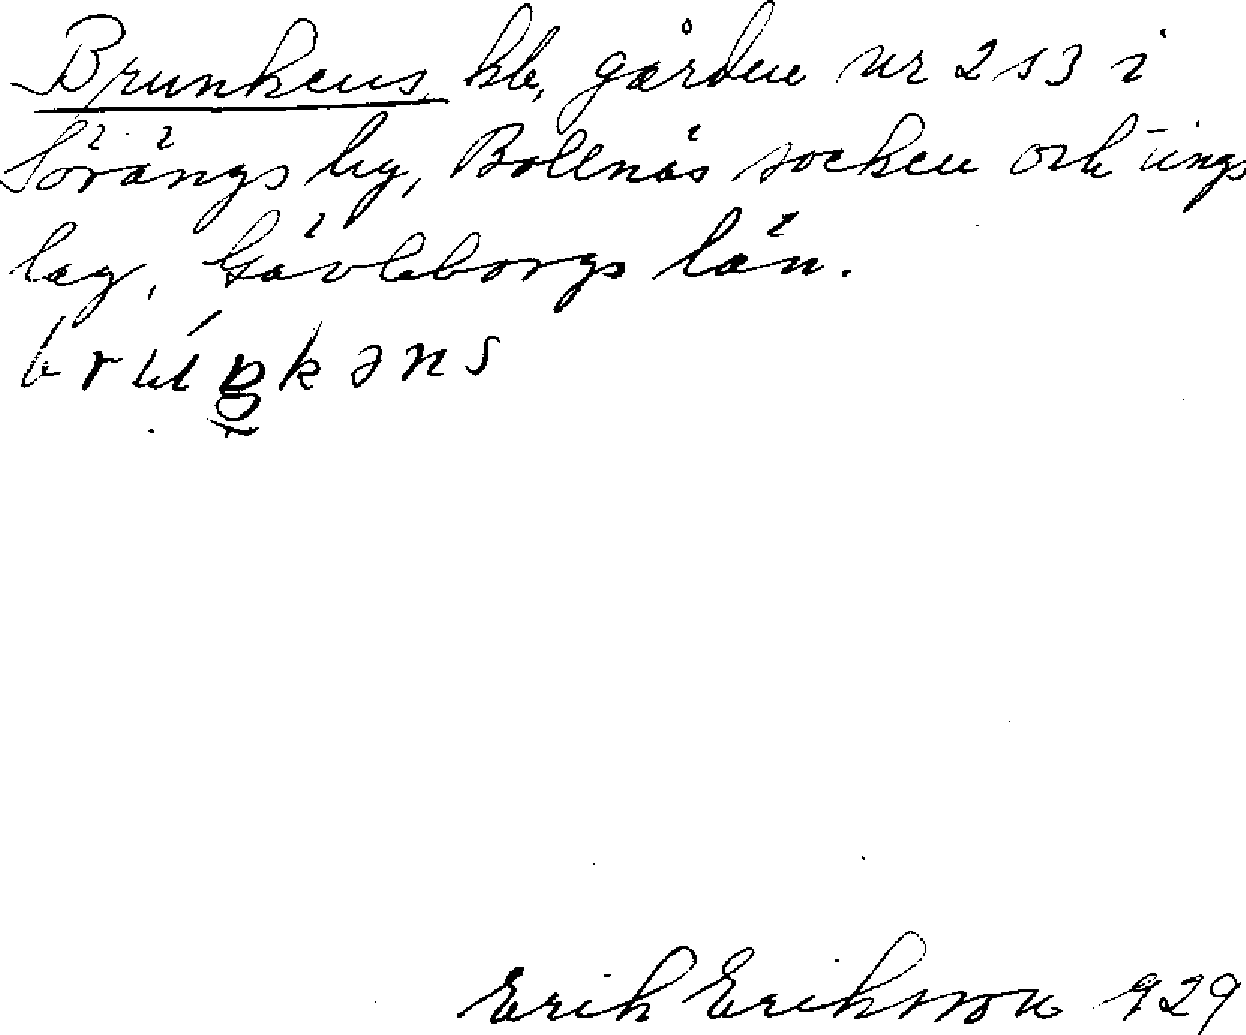 Brunkens kb, gården nr 2 s 3 i
Sörängs by, Bollnäs socken och tings
lag, Gävleborgs län.
Erik Eriksson 929